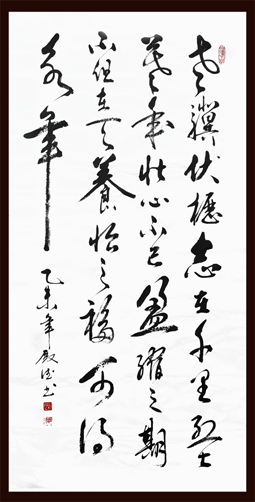 老驥伏櫪志在千里烈士
暮年壮心不已盈縮之期
不但在天養怡之福可得
永年
乙未年殿书